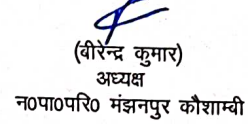 (बीरेन्द्र कुमार)
अध्यक्ष
न0पा0परि0 मंझनपुर कौशाम्बी